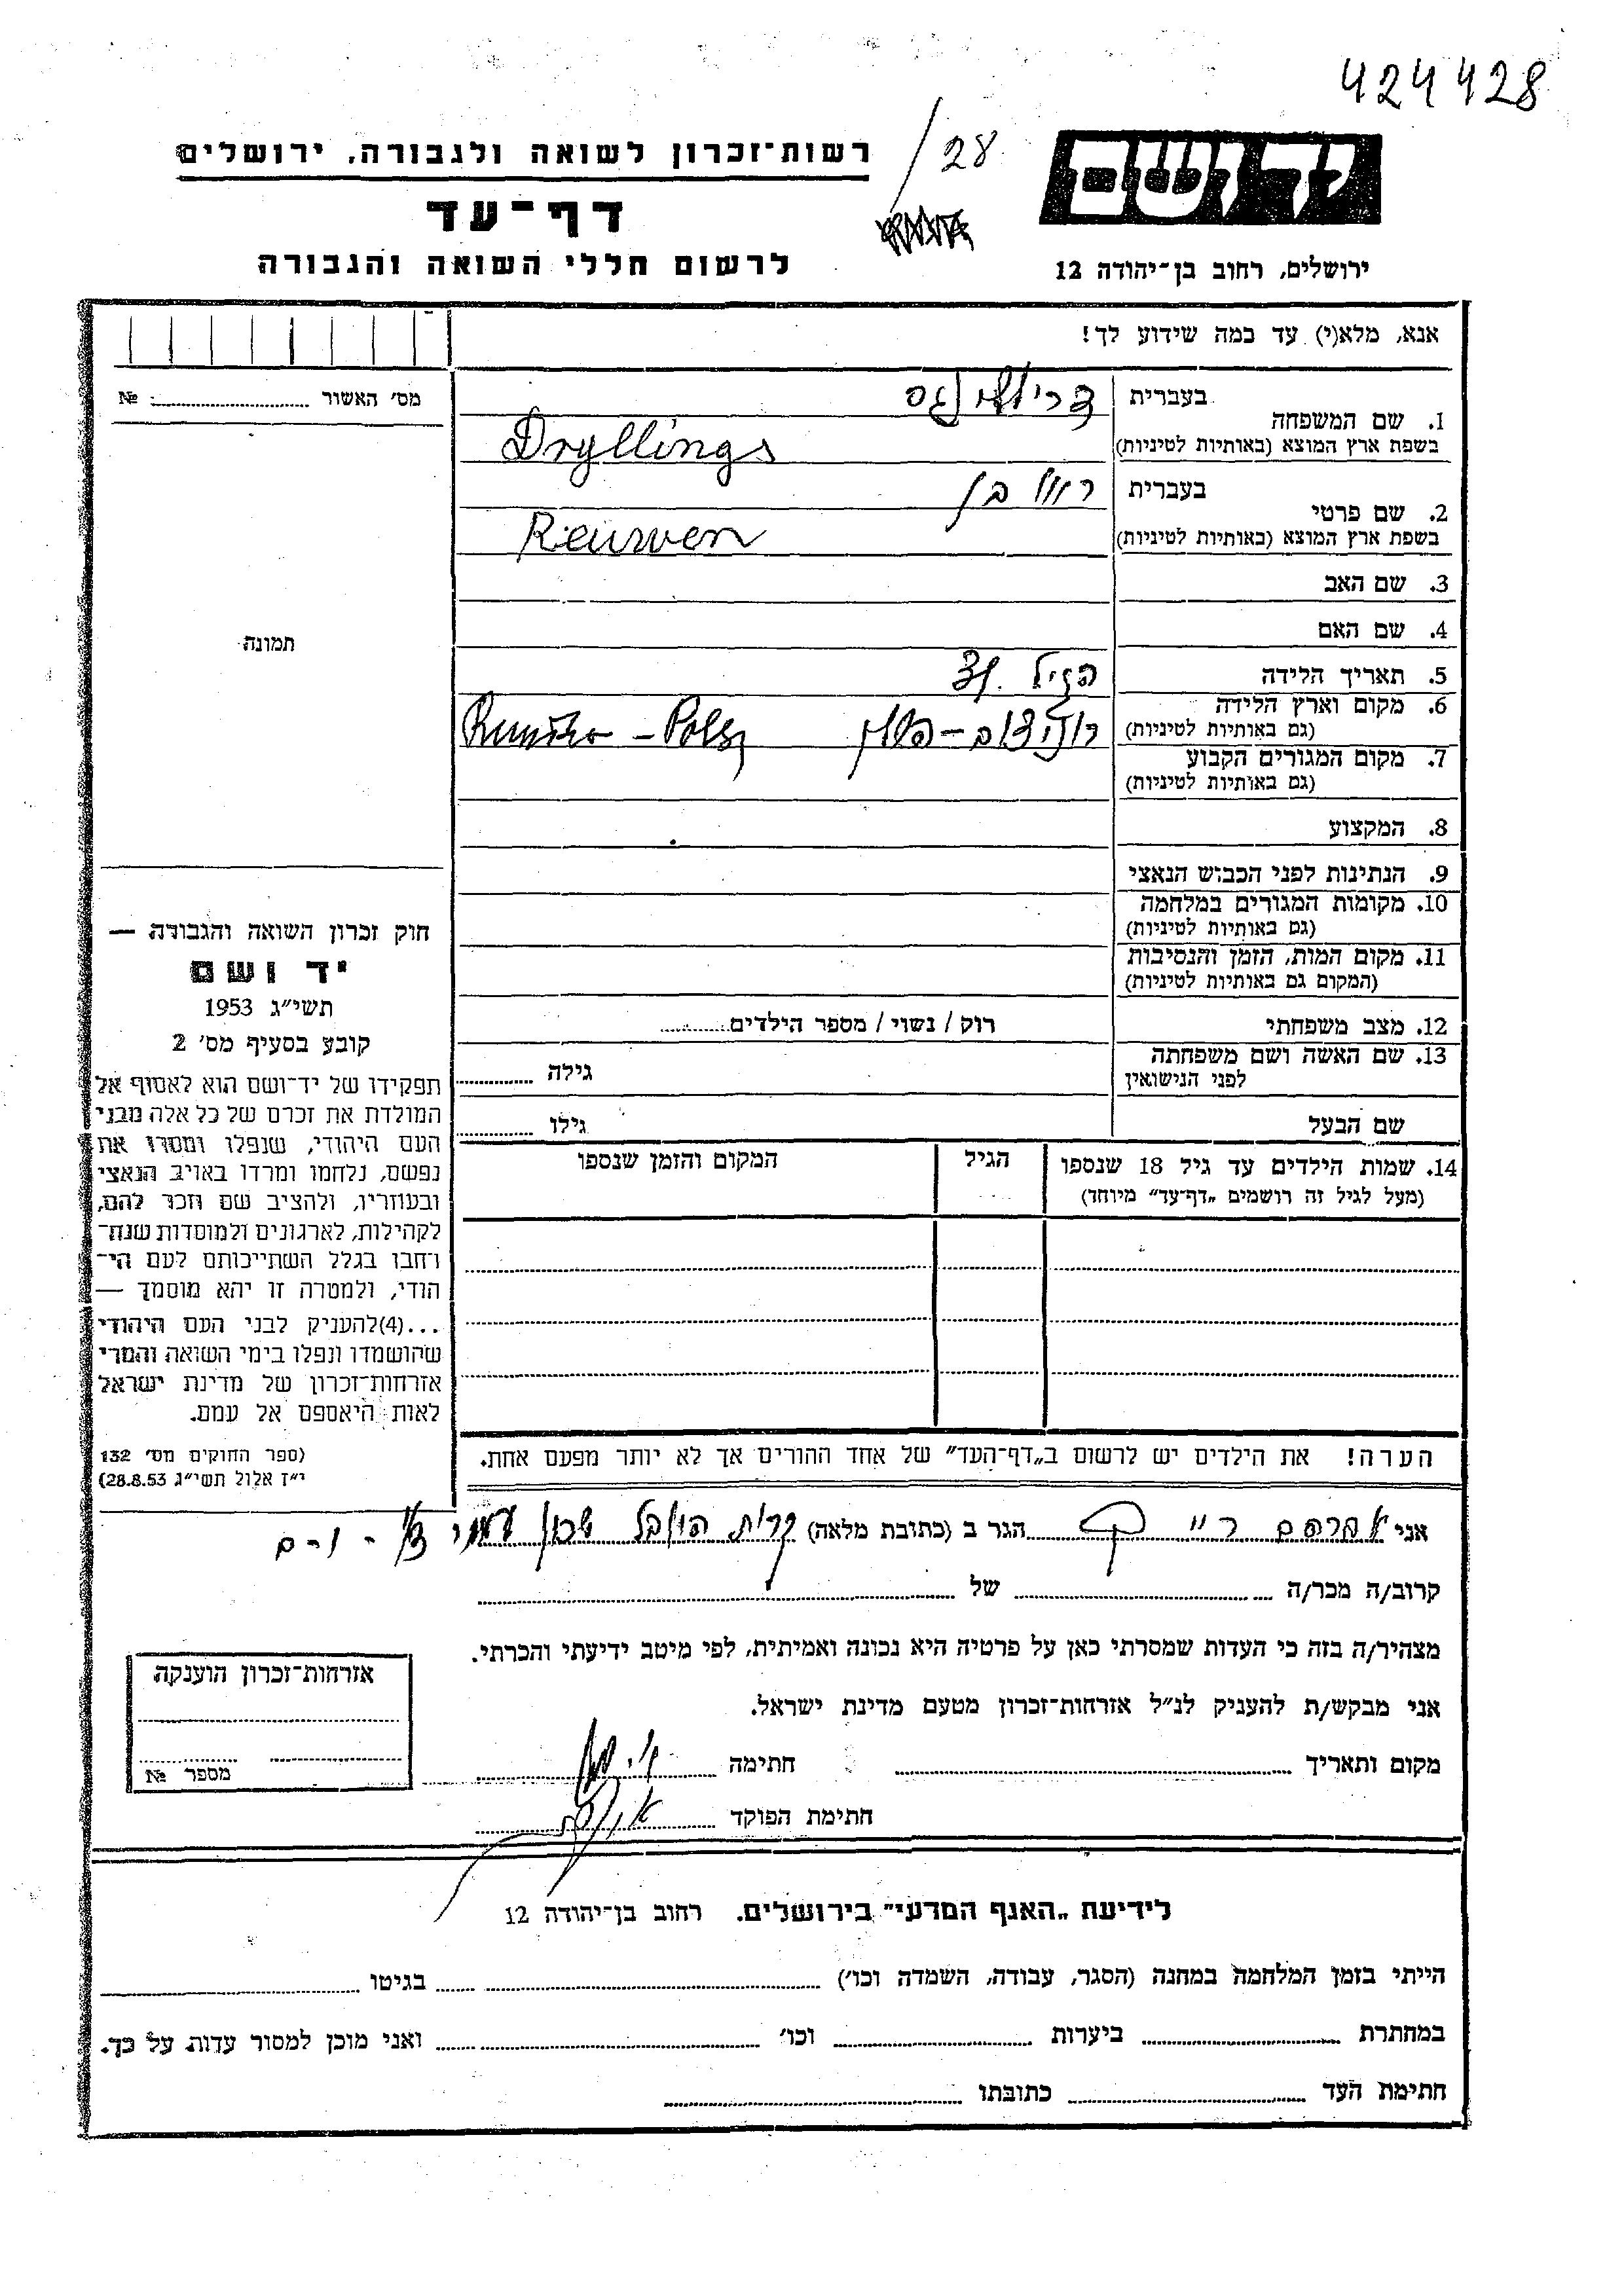 424428
28
יד ושם
רשות־זכרון לשואה ולגבורה, ירושלים
דף־עד
לרשום חללי השואה והגבורה
ירושלים, רחוב בן־יהודה 12
אנא, מלא(י) עד כמה שידוע לך!
מס׳ האשור № ........
תמונה
1. שם המשפחה
בעברית
בשפת ארץ המוצא (באותיות לטיניות)
Dryllings
2. שם פרטי
בעברית ראובן
בשפת ארץ המוצא (באותיות לטיניות)
Reuwen
3. שם האב
4. שם האם
5. תאריך הלידה בגיל 31
6. מקום וארץ הלידה
(גם באותיות לטיניות)
7. מקום המגורים הקבוע
(גם באותיות לטיניות)
8. המקצוע
9. הנתינות לפני הכבוש הנאצי
10. מקומות המגורים במלחמה
(גם באותיות לטיניות)
11. מקום המות, הזמן והנסיבות
(המקום גם באותיות לטיניות)
12. מצב משפחתי רוק / נשוי / מספר הילדים........
13. שם האשה ושם משפחתה
לפני הנישואין
גילה ........
שם הבעל גילו ........
14. שמות הילדים עד גיל 18 שנספו
(מעל לגיל זה רושמים „דף־עד” מיוחד)
הגיל
המקום והזמן שנספו
חוק זכרון השואה והגבורה —
יד ושם
תשי״ג 1953
קובע בסעיף מס׳ 2
תפקידו של יד־ושם הוא לאסוף אל
המולדת את זכרם של כל אלה מבני
העם היהודי, שנפלו ומסרו את
נפשם, נלחמו ומרדו באויב הנאצי
ובעוזריו, ולהציב שם וזכר להם,
לקהילות, לארגונים ולמוסדות שנח־
רבו בגלל השתייכותם לעם הי־
הודי, ולמטרה זו יהא מוסמך —
...(4)להעניק לבני העם היהודי
שהושמדו ונפלו בימי השואה והמרי
אזרחות־זכרון של מדינת ישראל
לאות היאספם אל עמם.
(ספר החוקים מס׳ 132
י״ז אלול תשי״ג 28.8.53)
הערה! את הילדים יש לרשום ב„דף־העד” של אחד ההורים אך לא יותר מפעם אחת.
אני אברהם הגר ב (כתובת מלאה) קרית היובל
קרוב/ה מכר/ה ........ של ........
מצהיר/ה בזה כי העדות שמסרתי כאן על פרטיה היא נכונה ואמיתית, לפי מיטב ידיעתי והכרתי.
אני מבקש/ת להעניק לנ״ל אזרחות־זכרון מטעם מדינת ישראל.
מקום ותאריך ........ חתימה
חתימת הפוקד
אזרחות־זכרון הוענקה
מספר №
לידיעת „האגף המדעי” בירושלים. רחוב בן־יהודה 12
הייתי בזמן המלחמה במחנה (הסגר, עבודה, השמדה וכו׳) ........ בגיטו ........
במחתרת ........ ביערות ........ וכו׳ ........ ואני מוכן למסור עדות על כך.
חתימת העד ........ כתובתו ........